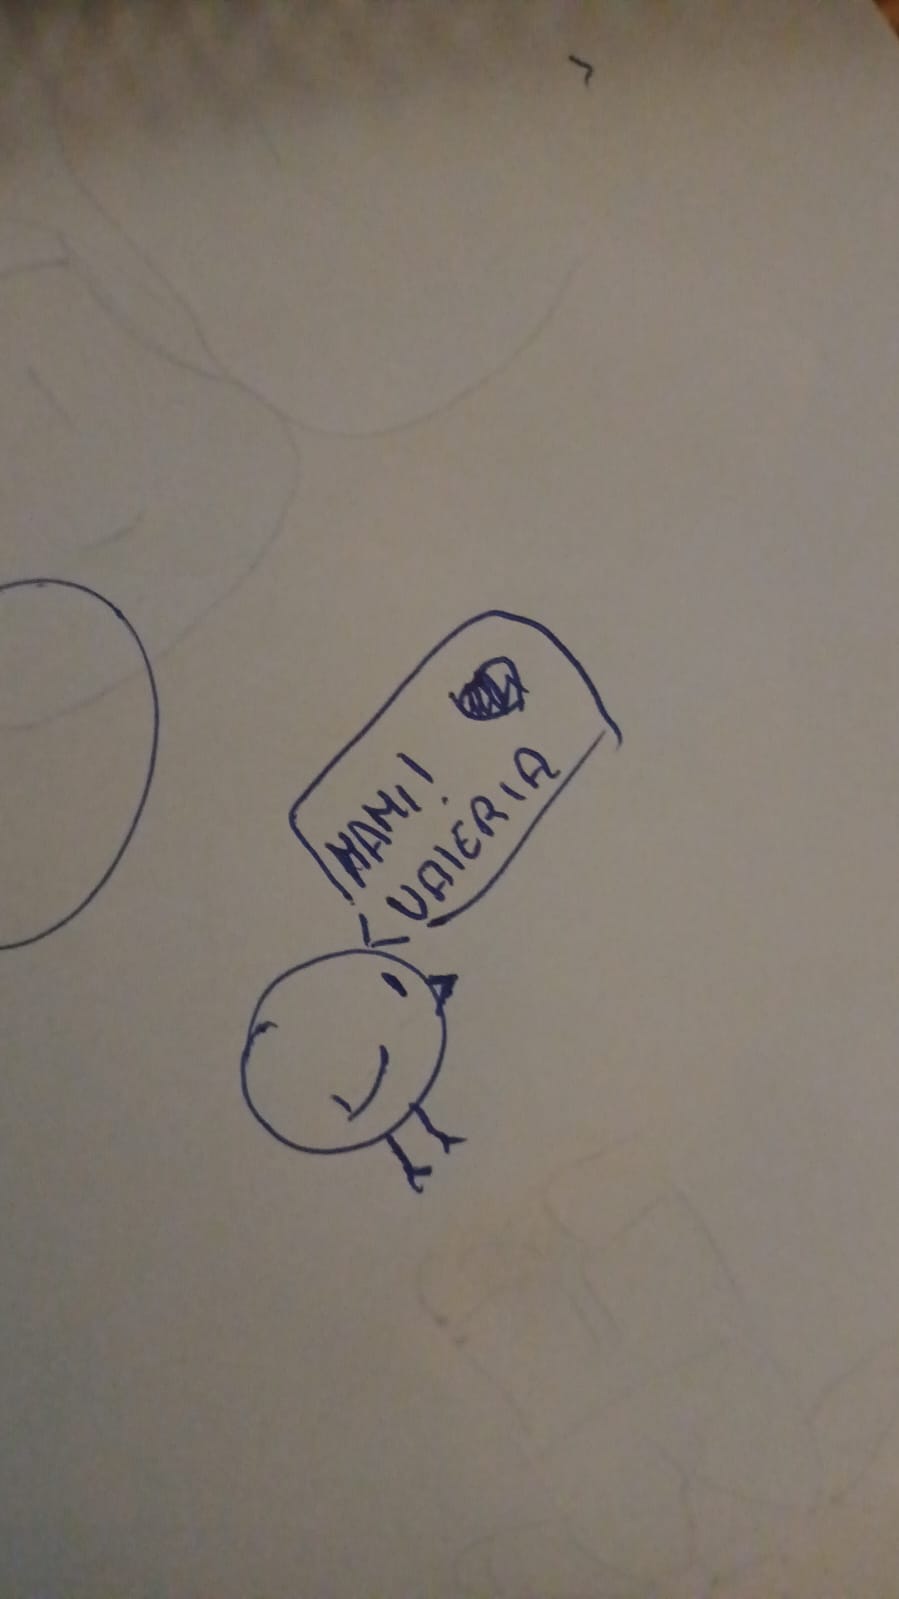 MAMI!
VALERIA